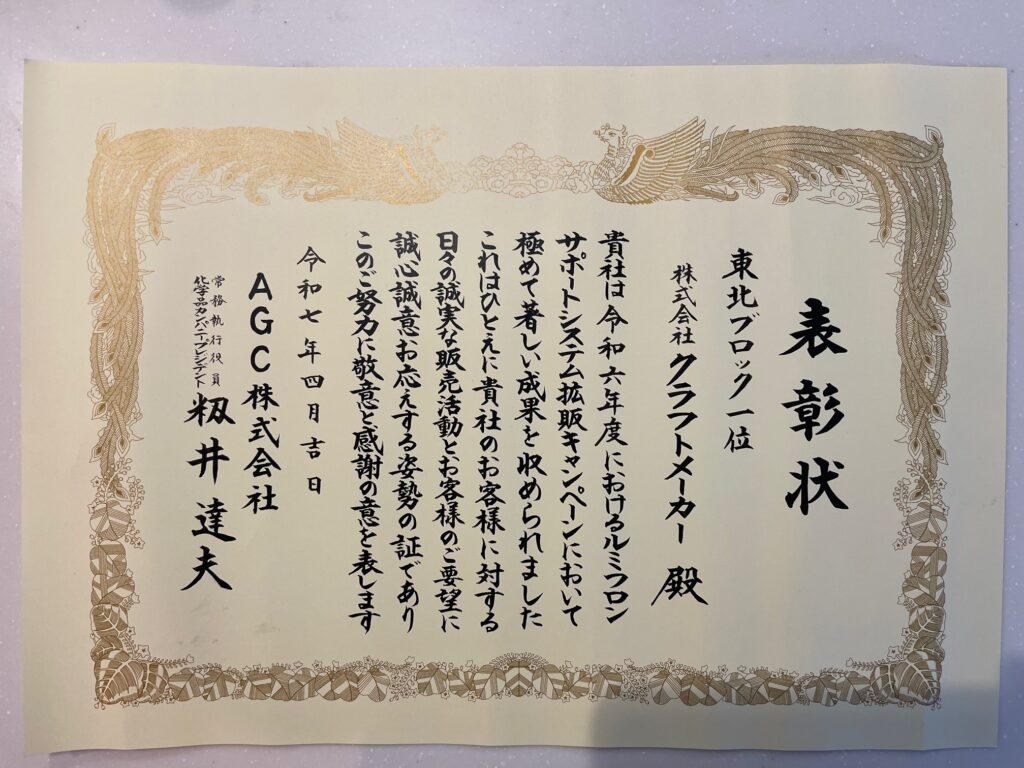 表彰状
東北ブロック一位
株式会社 クラフトメーカー 殿
貴社は令和六年度におけるルミフロン
サポートシステム拡販キャンペーンにおいて
極めて著しい成果を収められました
これはひとえに貴社のお客様に対する
日々の誠実な販売活動とお客様のご要望に
誠心誠意お応えする姿勢の証であり
このご努力に敬意と感謝の意を表します
令和七年四月吉日
AGC株式会社
常務執行役員
化学品カンパニープレジデント
籾井達夫